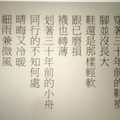 穿著三十年前的鞋
腳並沒長大
鞋還是那樣輕軟
跟已磨損
襪也轉薄
划著三十年前的小舟
同行的不知何處
晴晦又冷暖
細雨兼微風